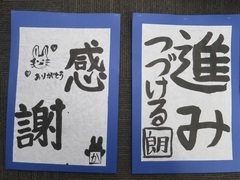 進み
つづける
朗
感謝
ありがとう
か